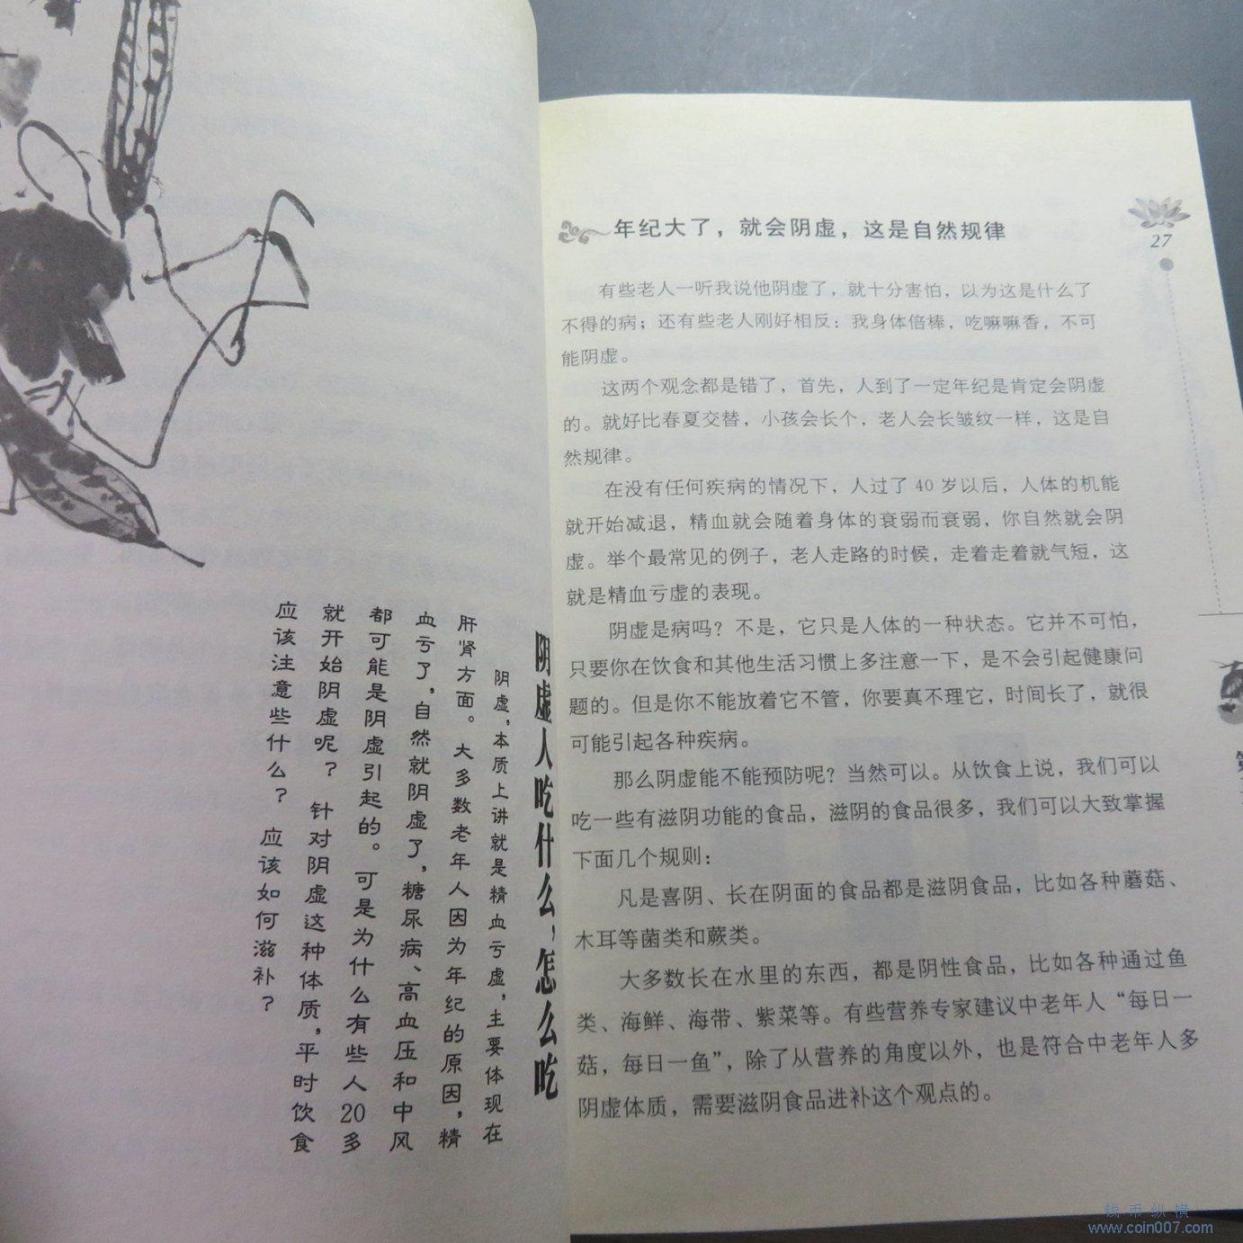 阴虚人吃什么，怎么吃
阴虚，本质上讲就是精血亏虚，主要体现在
肝肾方面。大多数老年人因为年纪的原因，精
血亏了，自然就阴虚了，糖尿病、高血压和中风
都可能是阴虚引起的。可是为什么有些人20多
就开始阴虚呢？针对阴虚这种体质，平时饮食
应该注意些什么？应该如何滋补？
27
年纪大了，就会阴虚，这是自然规律
有些老人一听我说他阴虚了，就十分害怕，以为这是什么了
不得的病；还有些老人刚好相反：我身体倍棒，吃嘛嘛香，不可
能阴虚。
这两个观念都是错了，首先，人到了一定年纪是肯定会阴虚
的。就好比春夏交替，小孩会长个，老人会长皱纹一样，这是自
然规律。
在没有任何疾病的情况下，人过了 40 岁以后，人体的机能
就开始减退，精血就会随着身体的衰弱而衰弱，你自然就会阴
虚。举个最常见的例子，老人走路的时候，走着走着就气短，这
就是精血亏虚的表现。
阴虚是病吗？不是，它只是人体的一种状态。它并不可怕，
只要你在饮食和其他生活习惯上多注意一下，是不会引起健康问
题的。但是你不能放着它不管，你要真不理它，时间长了，就很
可能引起各种疾病。
那么阴虚能不能预防呢？当然可以。从饮食上说，我们可以
吃一些有滋阴功能的食品，滋阴的食品很多，我们可以大致掌握
下面几个规则：
凡是喜阴、长在阴面的食品都是滋阴食品，比如各种蘑菇、
木耳等菌类和蕨类。
大多数长在水里的东西，都是阴性食品，比如各种通过鱼
类、海鲜、海带、紫菜等。有些营养专家建议中老年人“每日一
菇，每日一鱼”，除了从营养的角度以外，也是符合中老年人多
阴虚体质，需要滋阴食品进补这个观点的。
钱币纵横
www.coin007.com